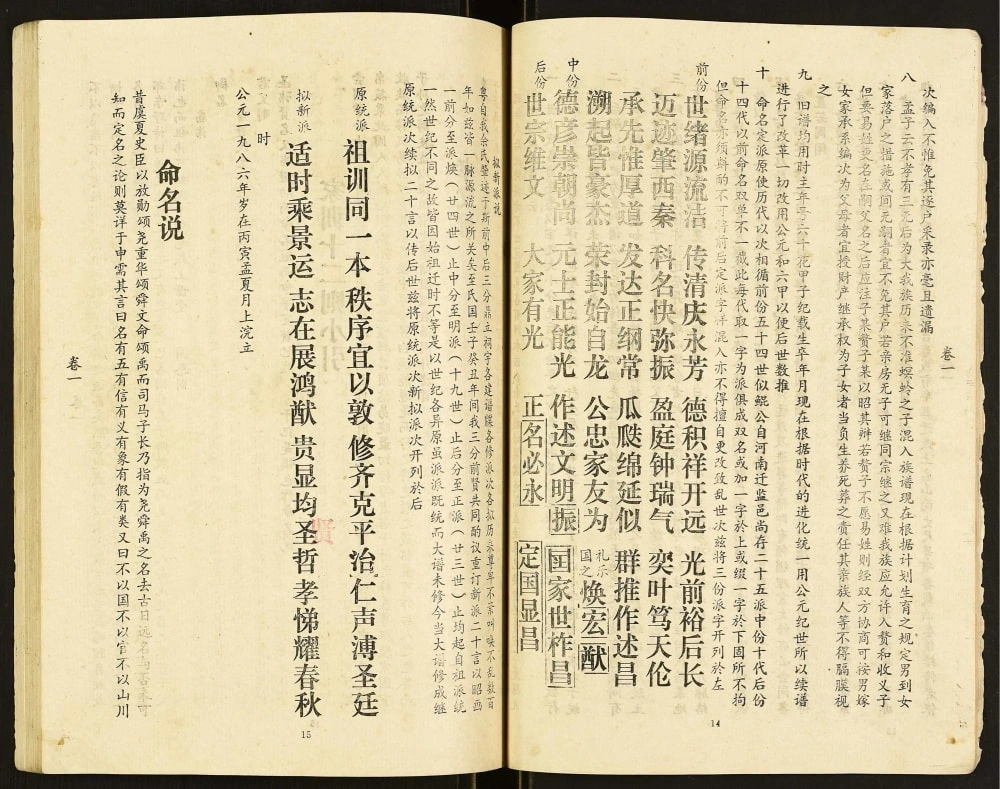 次编入不惟免其逐户采录亦毫且遗漏
八 孟子云不孝有三无后为大我族历来不准螟蛉之子混入族谱现在根据计划生育之规定男到女
家落户之措施或间无嗣者宜不免其户若亲房无子可继同宗继之又难我族应允许入赘和收义子
但要易姓更名在嗣父名之后应注子某赘子某以昭其辩若赘子不愿易姓则经双方协商可按男嫁
女家承系编次为父母者宜授财产继承权为子女者当负生养死葬之责任其亲族人等不得膈膜视
之
九 旧谱均用时主年号六十花甲子纪载生卒年月现在根据时代的进化统一用公元纪世所以续谱
进行了改革一切改用公元和六甲以使后世数推
十 命名定派原使历代以次相循前份五十四世似鲲公自河南迁监邑尚存二十五派中份十代后份
十四代以前命名双单不一截此每代取一字为派俱成双名或加一字於上或缀一字於下固所不拘
但命名亦须斟酌不可将前后定派字洋混入亦不得擅自更改致乱世次兹将三份派字开列於左
前份 世绪源流洁 传清庆永芳 德积祥开远 光前裕后长
迈迹肇西秦 科名快弥振 盈庭钟瑞气 奕叶笃天伦
承先惟厚道 发达正纲常 瓜瓞绵延似 群推作述昌
溯起皆豪杰 荣封始自龙 公忠家友为 礼乐国之焕宏猷
中份 德彦崇朝尚 元士正能光 作述文明振 国家世柞昌
后份 世宗维文 大家有光 正名必永 定国显昌
卷一
14
拟新派说
粤自我余氏肇迹于斯前中后三分鼎立祠宇各建谱牒各修派次各拟历来尊年不紊叫唤不乱数百
年如兹皆一脉源流之所关矣至氏国壬子癸丑年间我三分前贤共同酌议重订新派二十言以昭画
一前分至派焕（廿四世）止中分至明派（十九世）止后分至正派（廿三世）止均起自祖派统
一然世纪不同之故皆因始祖迁时不等是以世纪各异原虽派派既统而大谱未修今当大谱修成继
原统派次续拟二十言以传后世兹将原统派次新拟派次开列於后
原统派 祖训同一本 秩序宜以敦 修齐克平治 仁声溥圣廷
拟新派 适时乘景运 志在展鸿猷 贵显均圣哲 孝悌耀春秋
时
公元一九八六年岁在丙寅孟夏月上浣立
命名说
昔虞夏史臣以放勋颂尧重华颂舜文命颂禹而司马子长乃指为尧舜禹之名去古日远名与古奉可
知而定名之论则莫详于申需其言曰名有五有信有义有象有假有类又曰不以国不以官不以山川
卷一
15